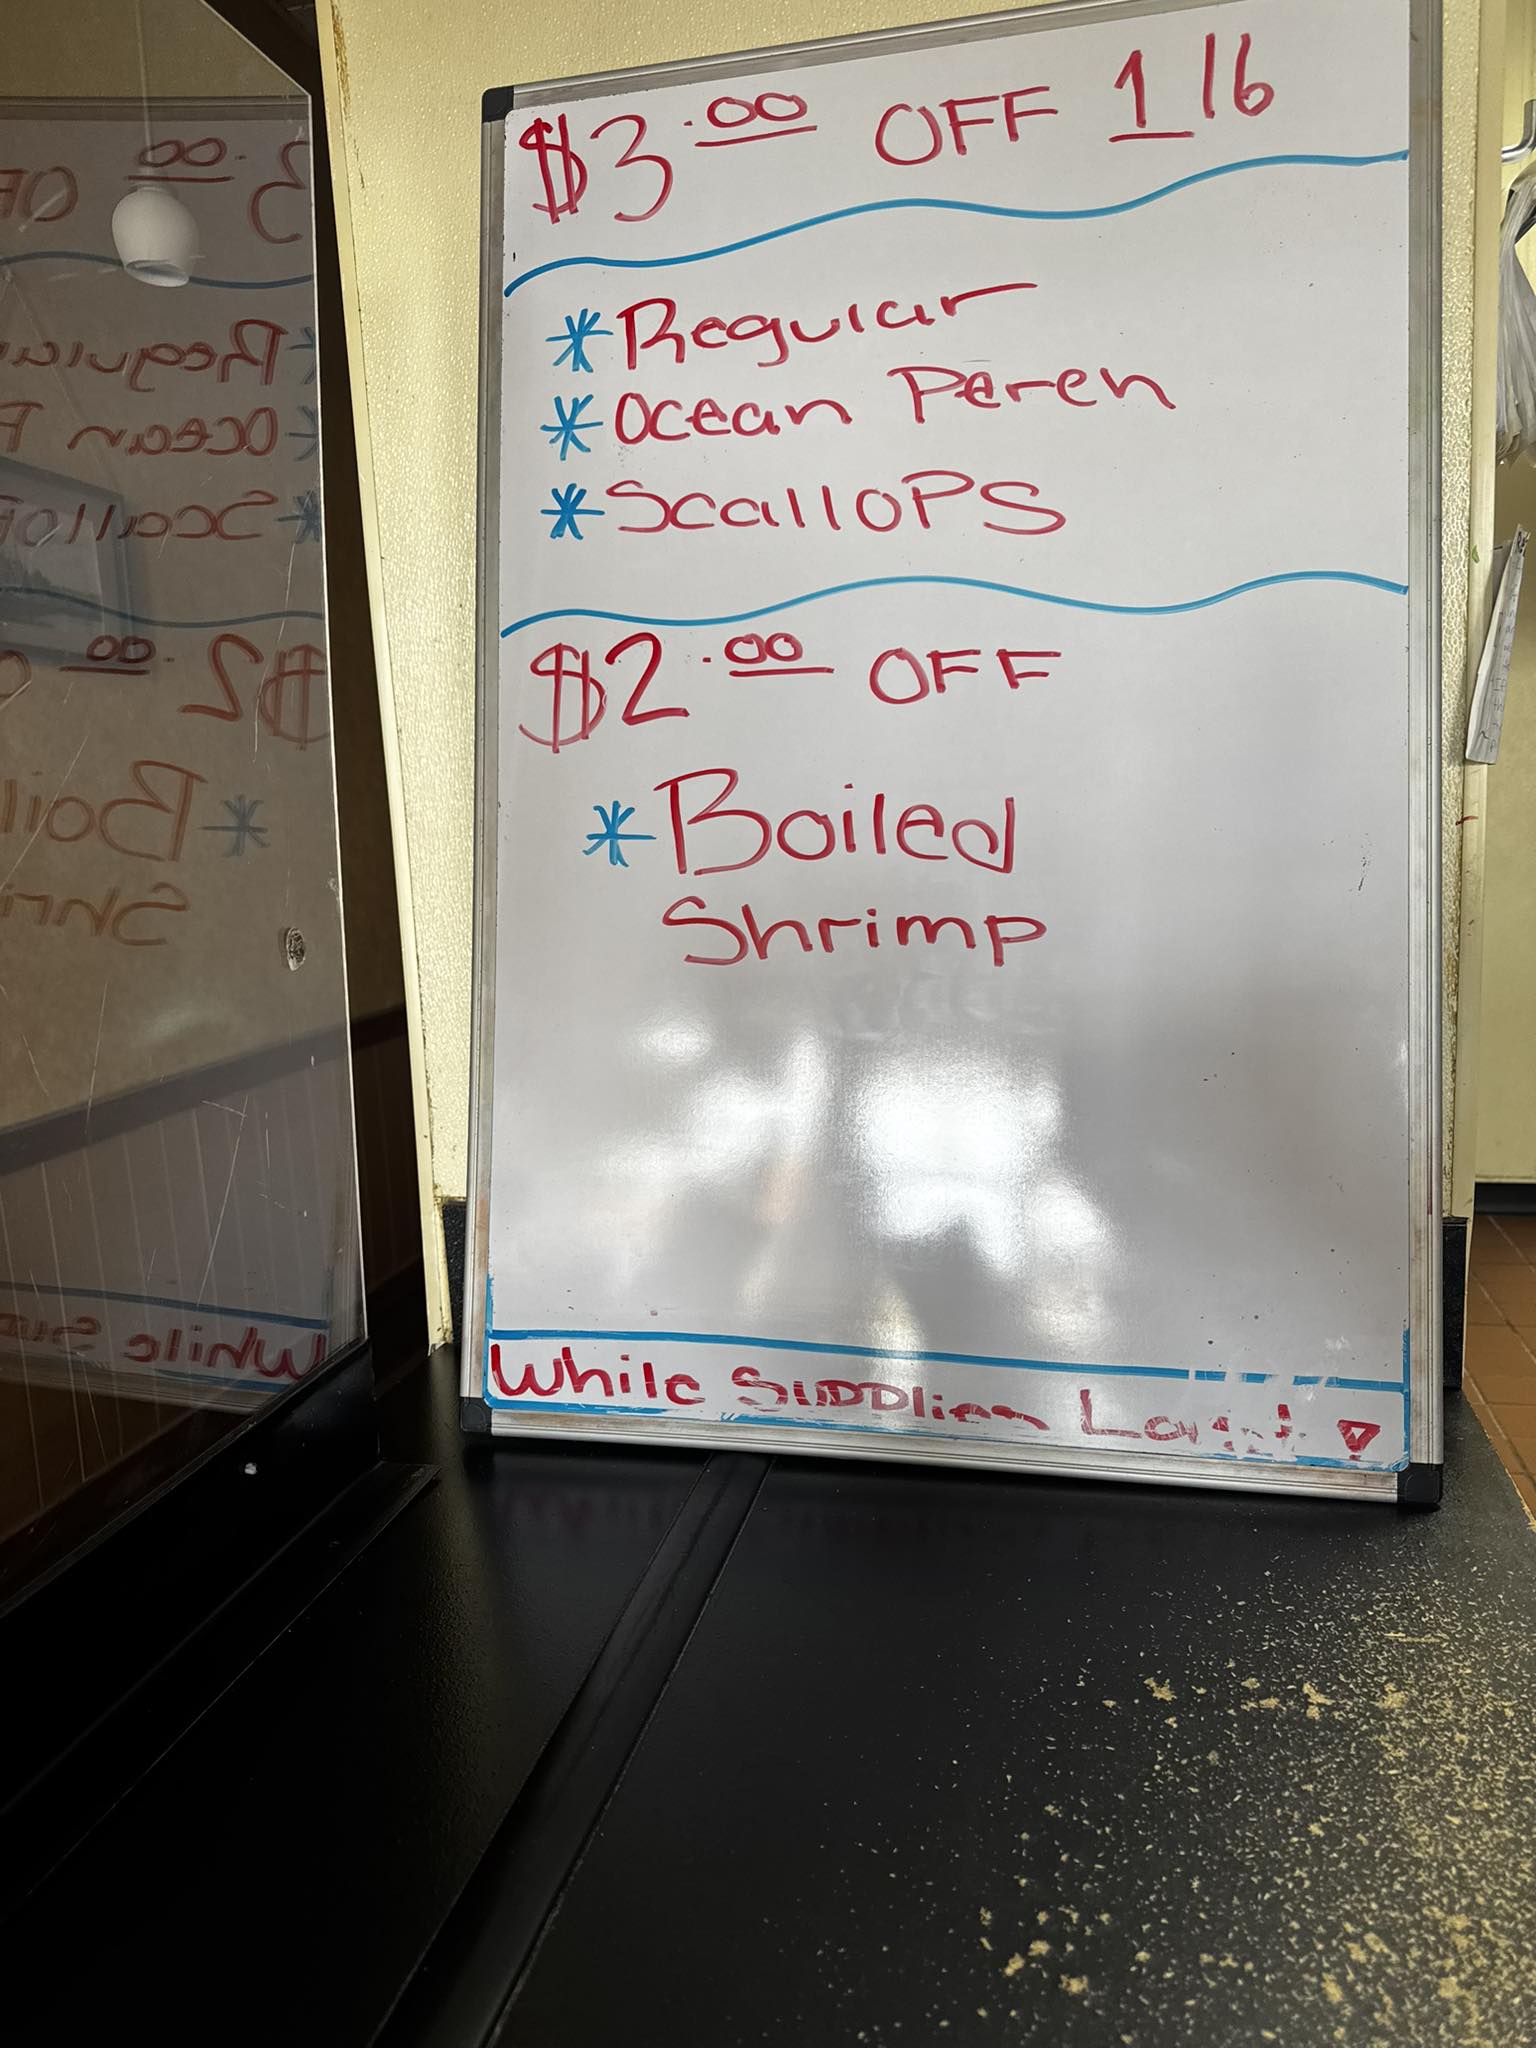 $3.00 OFF 1 lb
*Regular
*Ocean Peren
*ScalloPS
$2.00 OFF
*Boiled
Shrimp
While Supplies Last